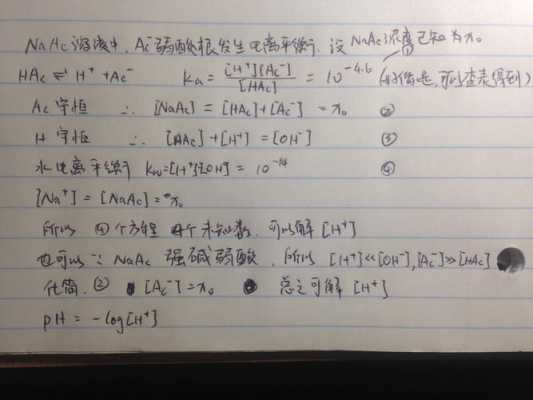 NaAc溶液中, Ac⁻弱酸根发生电离平衡, 设NaAc浓度已知为x₀
HAc ⇌ H⁺ + Ac⁻ Ka = [H⁺][Ac⁻]/[HAc] = 10^-4.6 ① (好像是, 可以查表得到)
Ac守恒 ∴ [NaAc] = [HAc]+[Ac⁻] = x₀ ②
H守恒 ∴ [HAc]+[H⁺] = [OH⁻] ③
水电离平衡 Kw=[H⁺][OH⁻] = 10^-14 ④
[Na⁺] = [NaAc] = x₀
所以 ④个方程 4个未知数, 可以解[H⁺]
也可以 ∵ NaAc 强碱弱酸, 所以 [H⁺]<<[OH⁻], [Ac⁻]>>[HAc]
化简, ② [Ac⁻] = x₀ 总之可解 [H⁺]
pH = -log[H⁺]